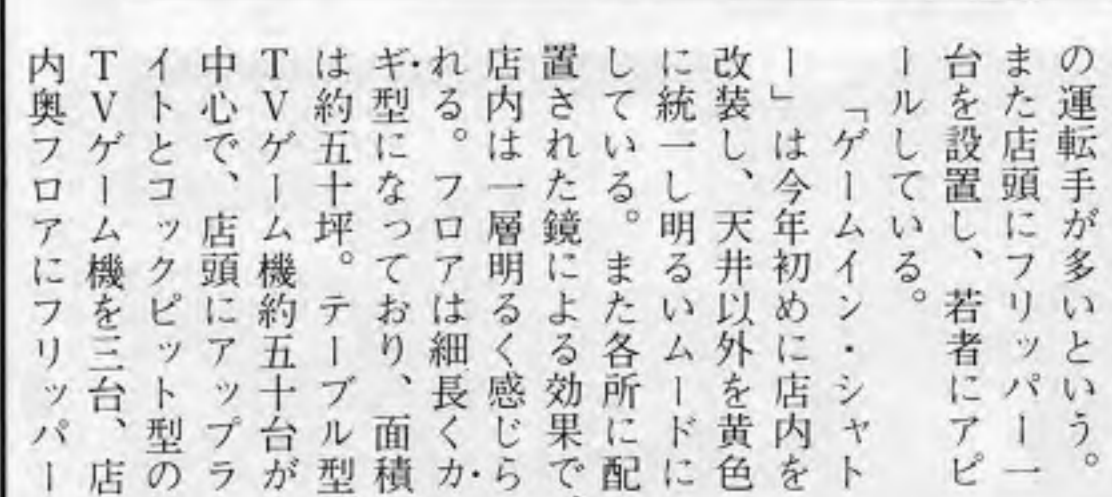 の運転手が多いという。
また店頭にフリッパー一
台を設置し、若者にアピ
ールしている。
「ゲームイン・シャト
ー」は今年初めに店内を
改装し、天井以外を黄色
に統一し明るいムードに
している。また各所に配
置された鏡による効果で、
店内は一層明るく感じら
れる。フロアは細長くカ
ギ型になっており、面積
は約五十坪。テーブル型
TVゲーム機約五十台が
中心で、店頭にアップラ
イトとコックピット型の
TVゲーム機を三台、店
内奥フロアにフリッパー